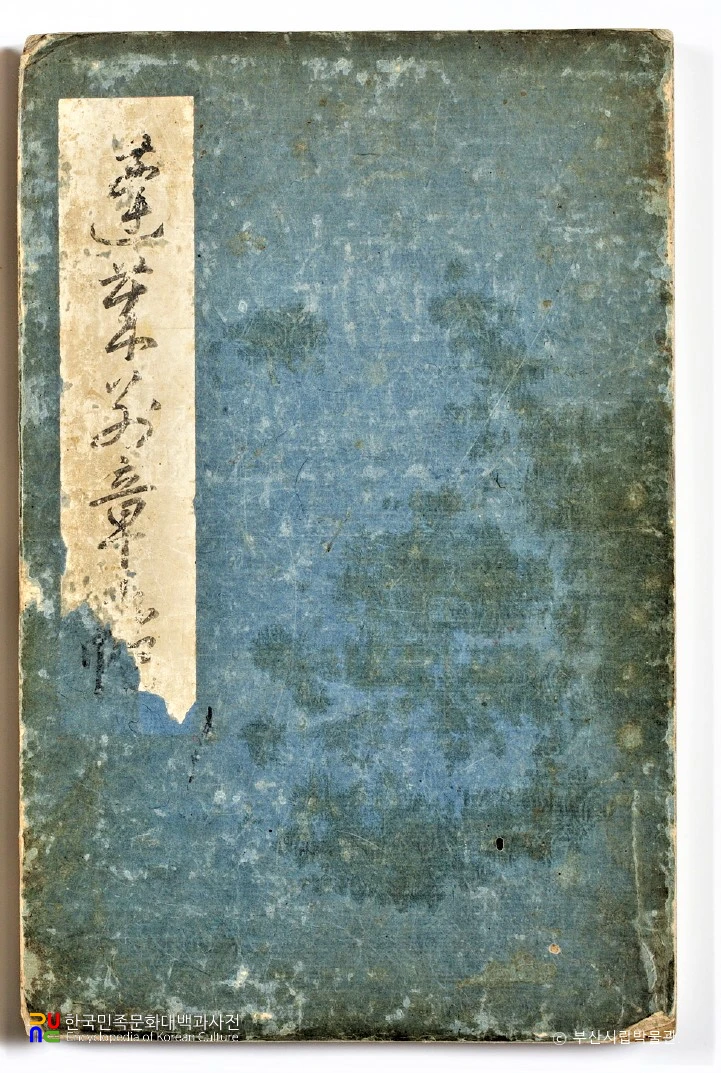 蓬萊 章 帖
한국민족문화대백과사전
Encyclopedia of Korean Culture
© 부산시립박물관